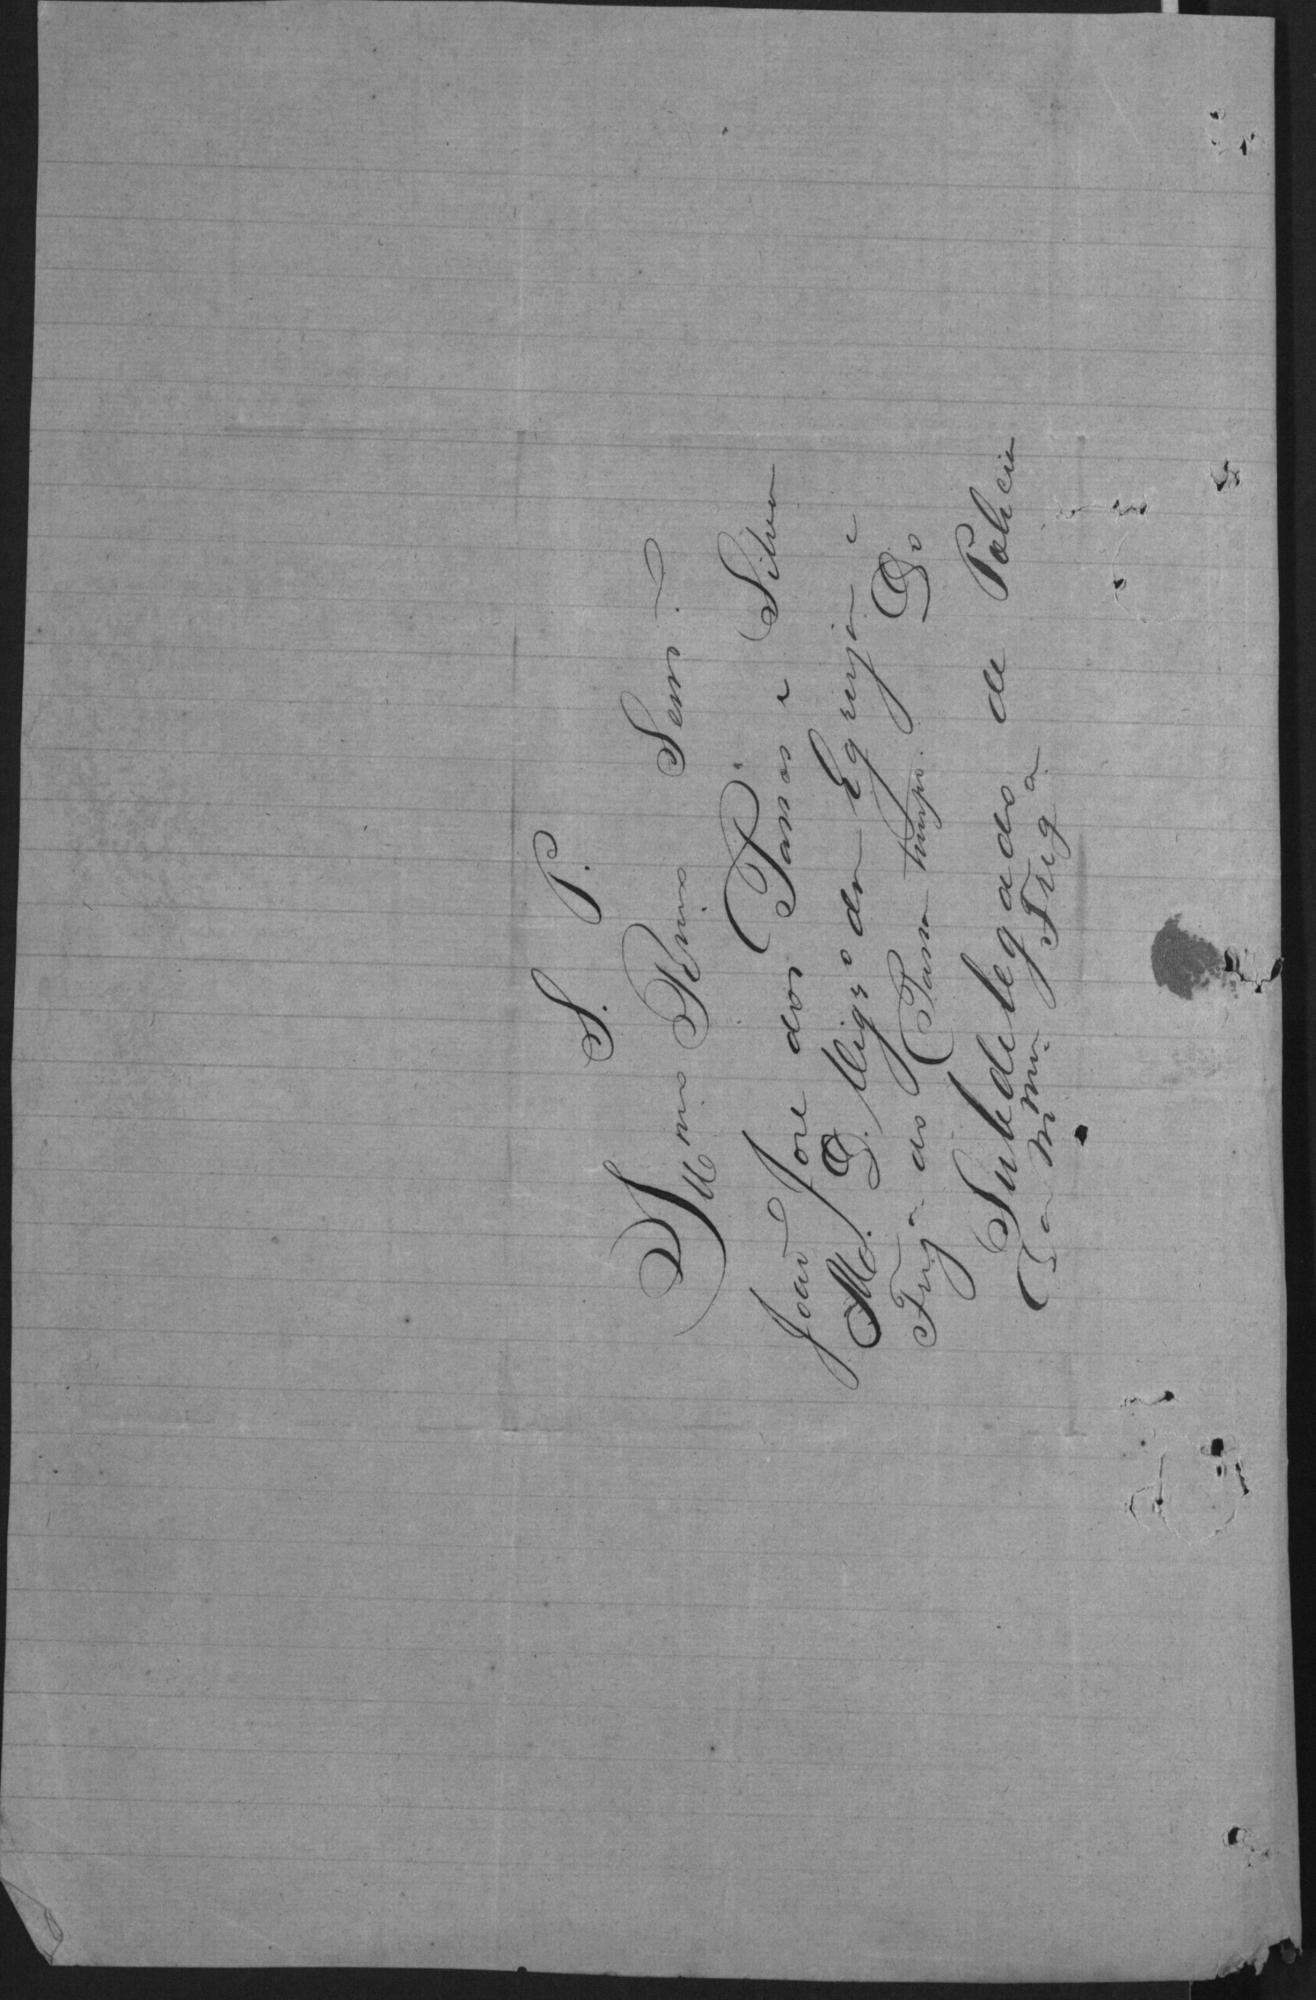 S. P.
Illmo Rmo Senr.
João José dos Passos e Silva
M. D. Vigro da Egreja e
Freg.a do Passa tempo. Do
Subdelegado de Policia
da mma Freg.a